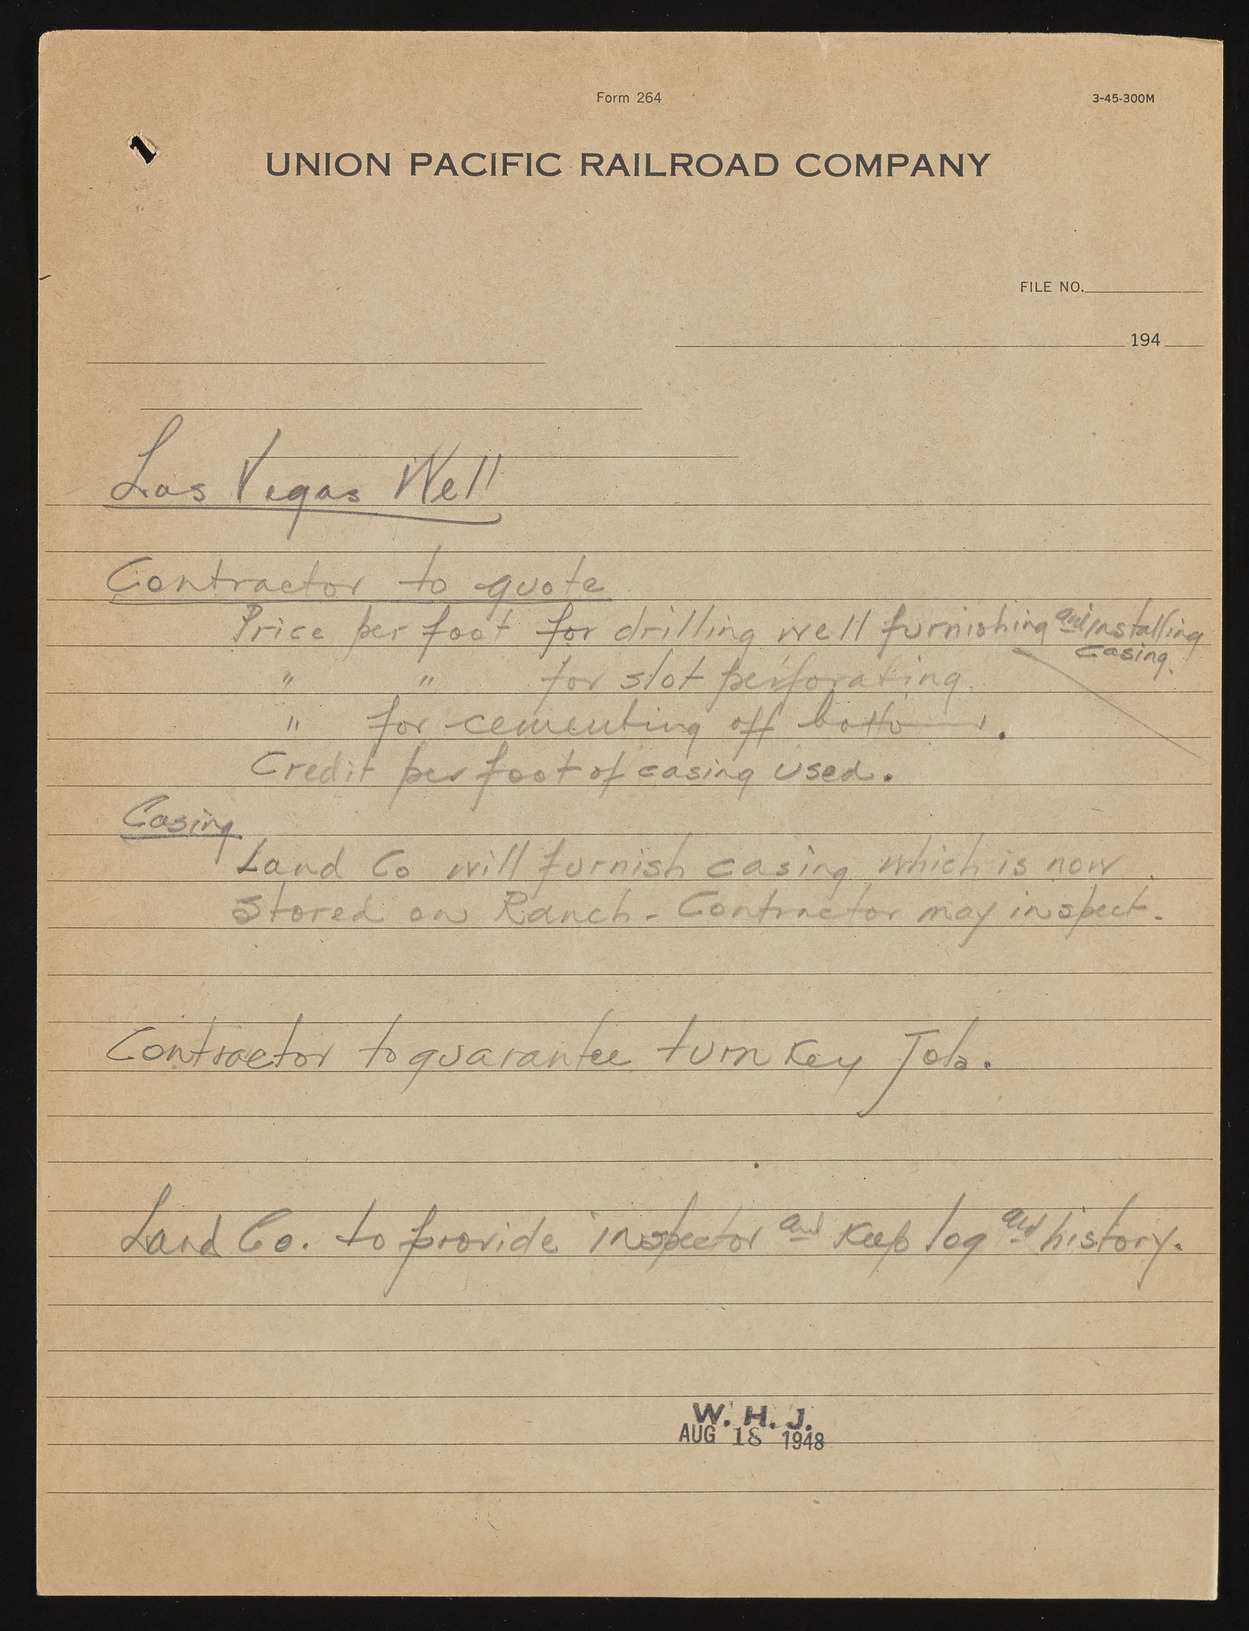 Form 264
3-45-300M
UNION PACIFIC RAILROAD COMPANY
FILE NO.
194
Las Vegas Well
Contractor to quote
Price per foot for drilling well furnishing and installing casing.
" " for slot perforating
" for cementing off bottom.
Credit per foot of casing used.
Casing
Land Co will furnish casing which is now
stored on Ranch - Contractor may inspect.
Contractor to guarantee turn key Job.
Land Co. to provide inspector and keep log and history.
W. H. J.
AUG 18 1948